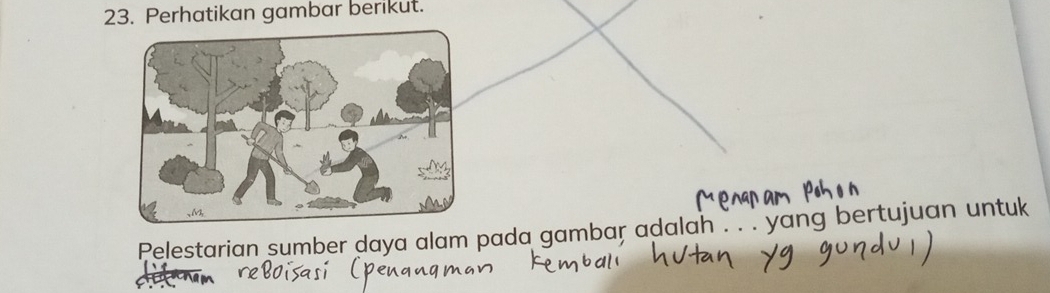 23. Perhatikan gambar berikut.
Menanam Pohon
Pelestarian sumber daya alam pada gambar adalah . . . yang bertujuan untuk
reboisasi (penanaman kembali hutan yg gundul)